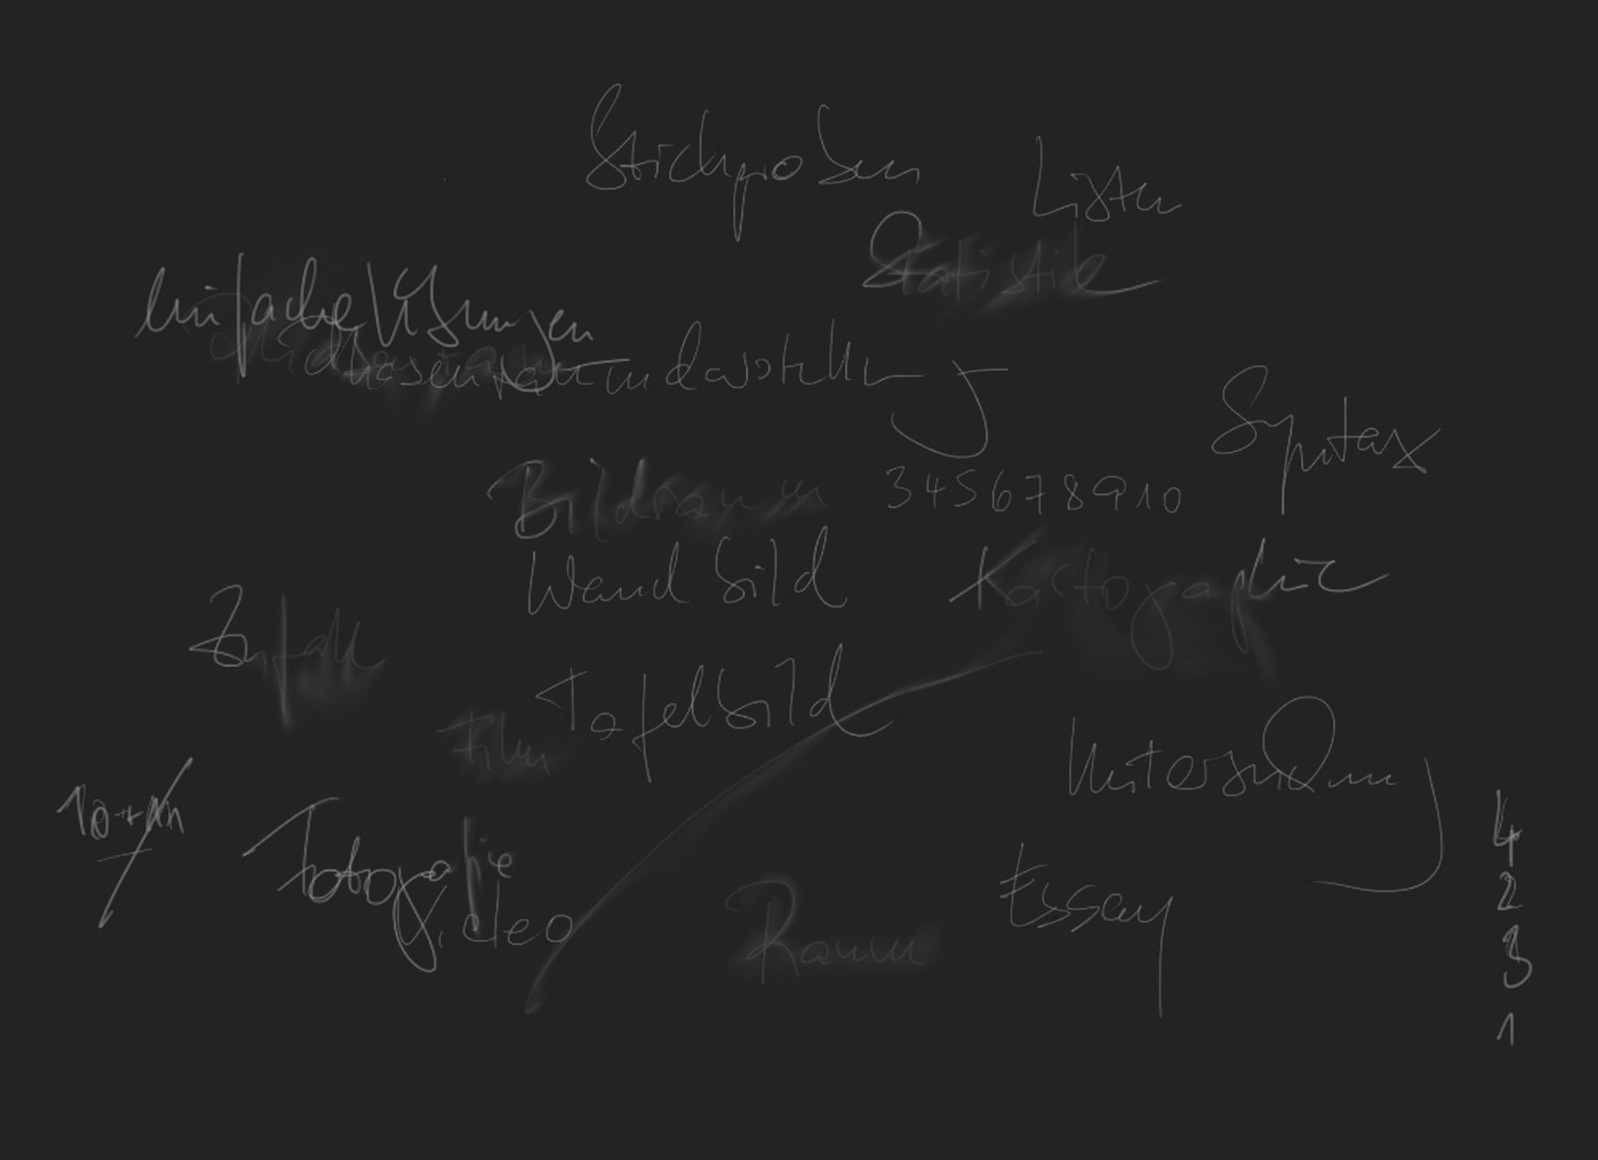 Stichproben
Listen
Statistik
einfache Übungen
Phasenraumdarstellung
Syntax
Bildraum
3 4 5 6 7 8 9 10
Wandbild
Kartographie
Zufall
Tafelbild
Film
Untersuchung
Fotografie
Video
Essay
Raum
4
2
3
1